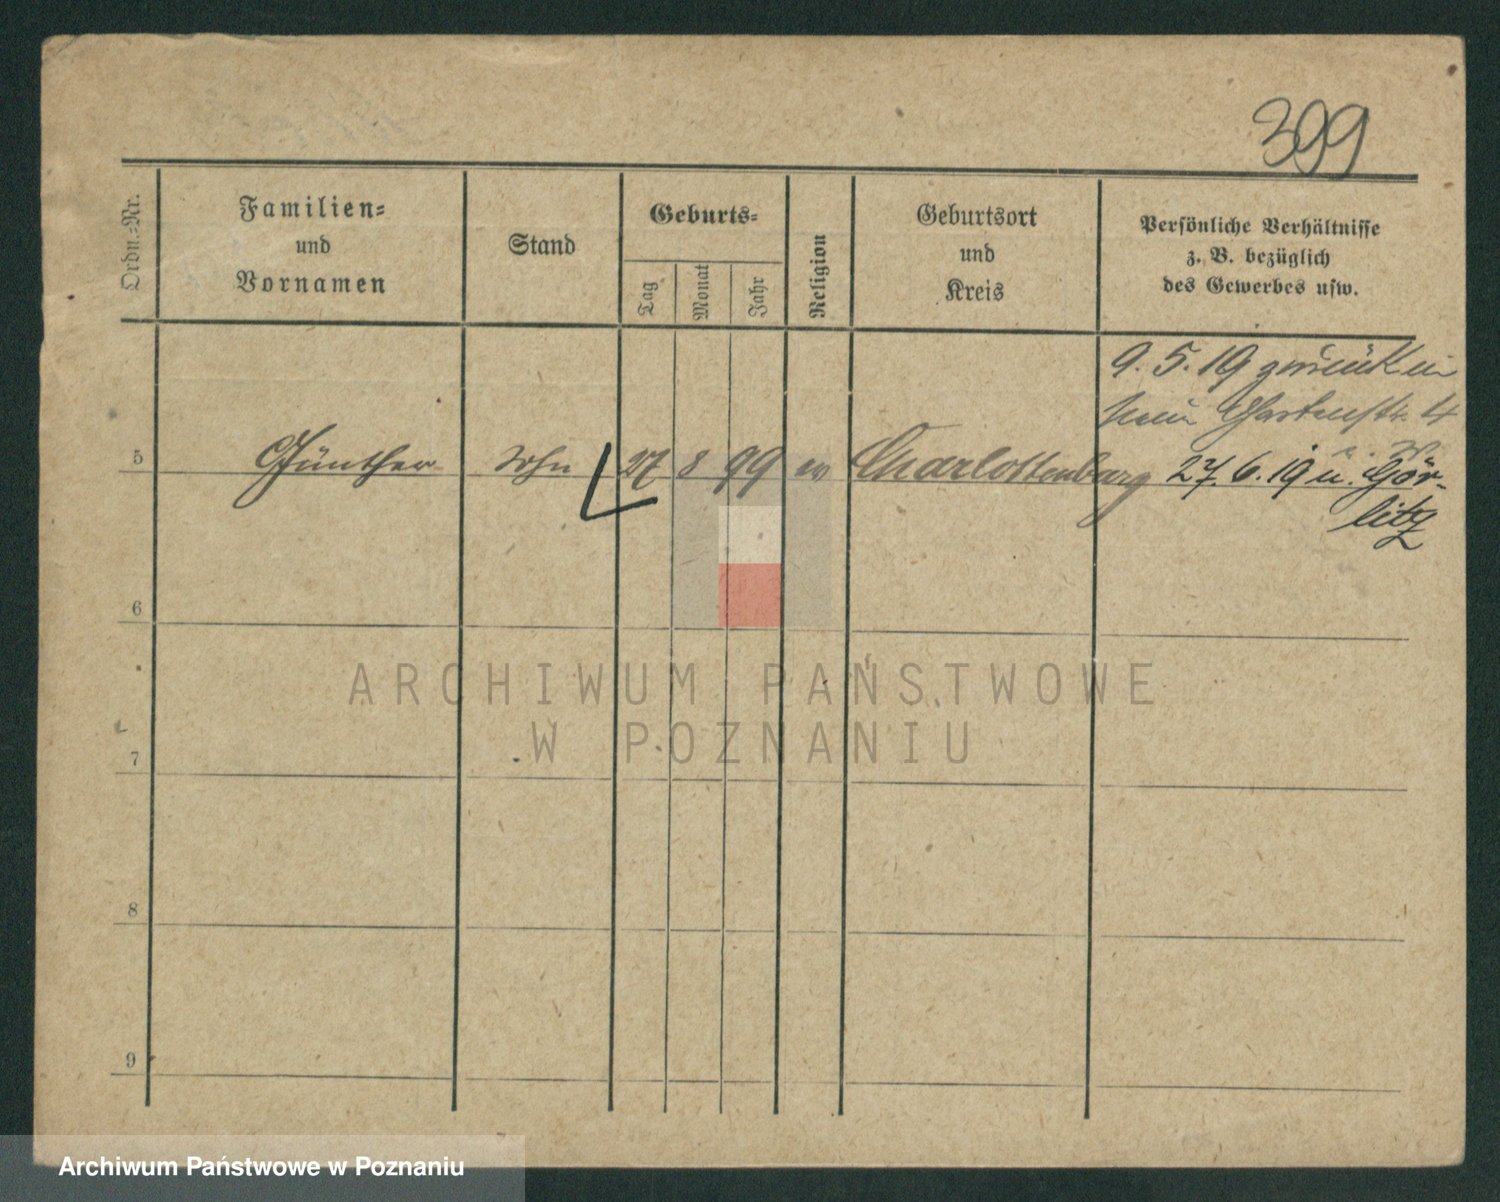 399
Ordn.-Nr.
Familien-
und
Vornamen
Stand
Geburts-
Tag
Monat
Jahr
Religion
Geburtsort
und
Kreis
Persönliche Verhältnisse
z. B. bezüglich
des Gewerbes usw.
9. 5. 19 zurück
Gartenstr. 4
5 Günther Sohn 27 8 99 ev Charlottenburg 27. 6. 19 n. Gör-
litz
6
ARCHIWUM PAŃSTWOWE
W POZNANIU
7
8
9
Archiwum Państwowe w Poznaniu